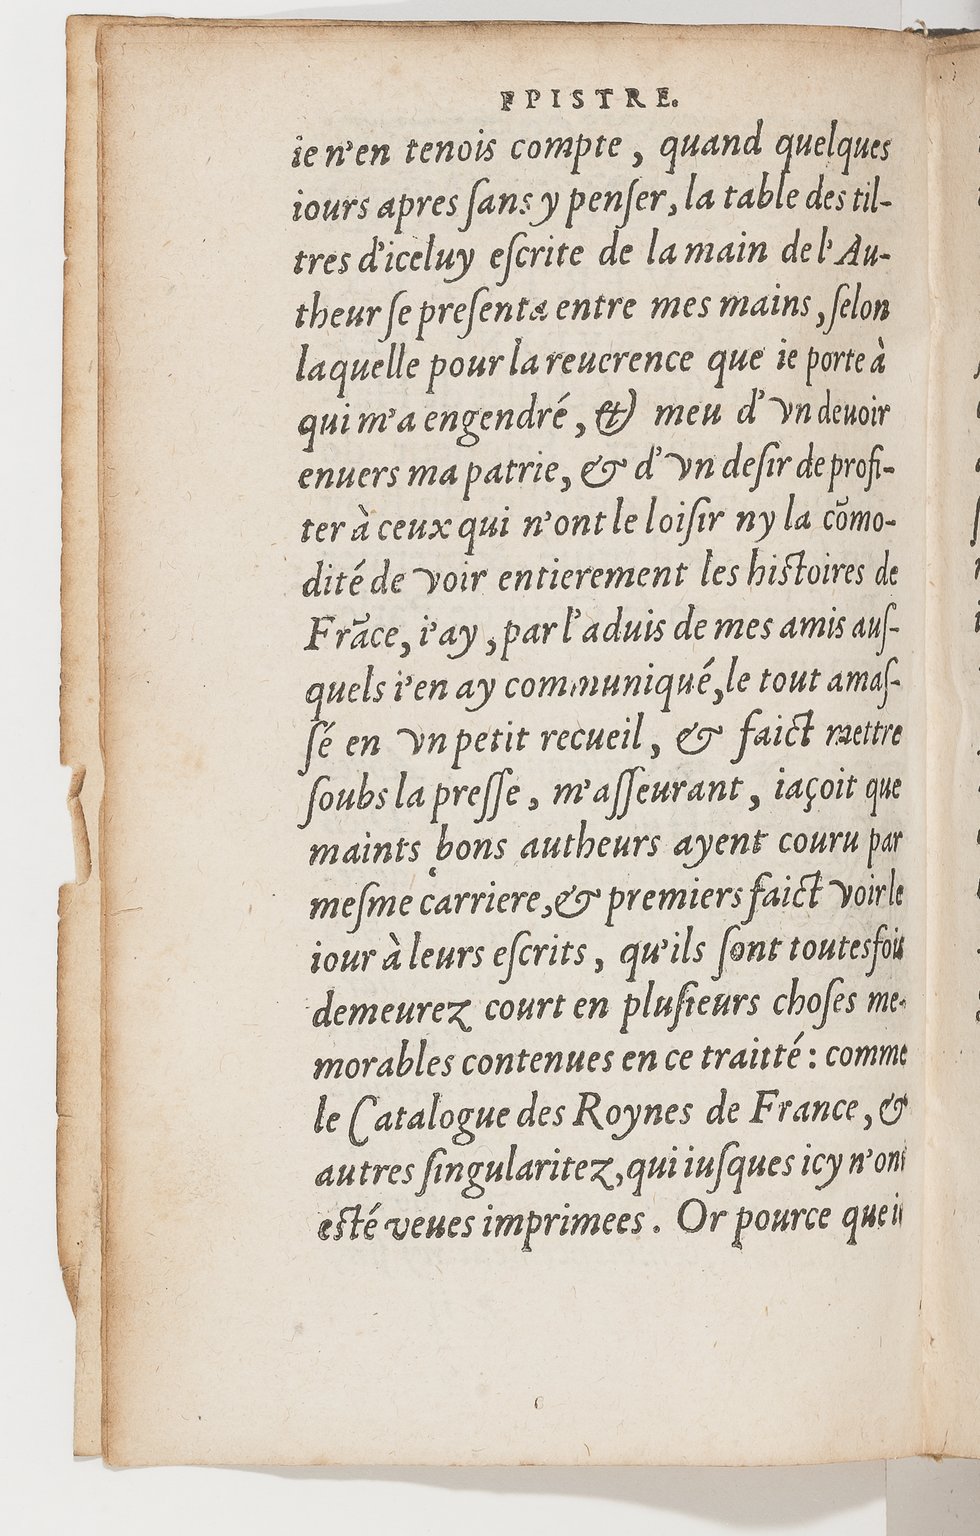 EPISTRE.
ie n'en tenois compte, quand quelques
iours apres ſans y penſer, la table des til-
tres d'iceluy eſcrite de la main de l'Au-
theur ſe preſenta entre mes mains, ſelon
laquelle pour la reuerence que ie porte à
qui m'a engendré, & meu d'vn deuoir
enuers ma patrie, & d'vn deſir de profi-
ter à ceux qui n'ont le loiſir ny la cõmo-
dité de voir entierement les hiſtoires de
Frãce, i'ay, par l'aduis de mes amis auſ-
quels i'en ay communiqué, le tout amaſ-
ſé en vn petit recueil, & faict mettre
ſoubs la preſſe, m'aſſeurant, iaçoit que
maints bons autheurs ayent couru par
meſme carriere, & premiers faict voir le
iour à leurs eſcrits, qu'ils ſont toutesfois
demeurez court en pluſieurs choſes me-
morables contenues en ce traitté: comme
le Catalogue des Roynes de France, &
autres ſingularitez, qui iuſques icy n'ont
eſté veues imprimees. Or pource que